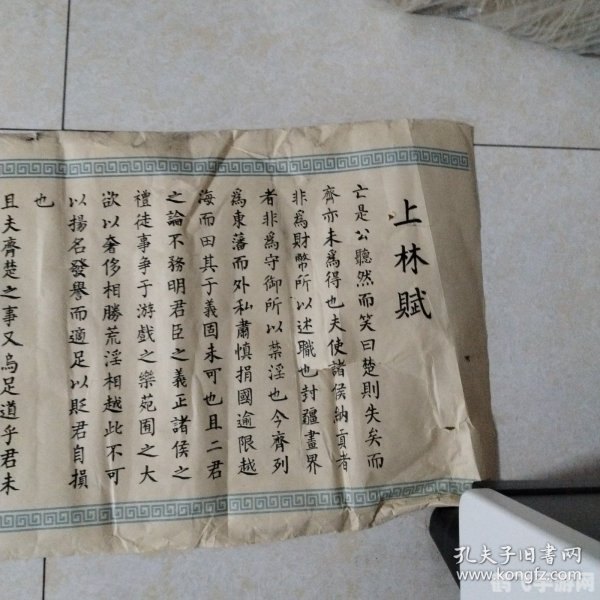 上林賦
亡是公听然而笑曰楚則失矣而
齊亦未為得也夫使諸侯納貢者
非為財幣所以述職也封疆畫界
者非為守御所以禁淫也今齊列
為東藩而外私肅慎捐國逾限越
海而田其于義固未可也且二君
之論不務明君臣之義正諸侯之
禮徒事爭于游戲之樂苑囿之大
欲以奢侈相勝荒淫相越此不可
以揚名發譽而適足以貶君自損
也
且夫齊楚之事又烏足道乎君未
孔夫子旧书网
www.kongfz.com